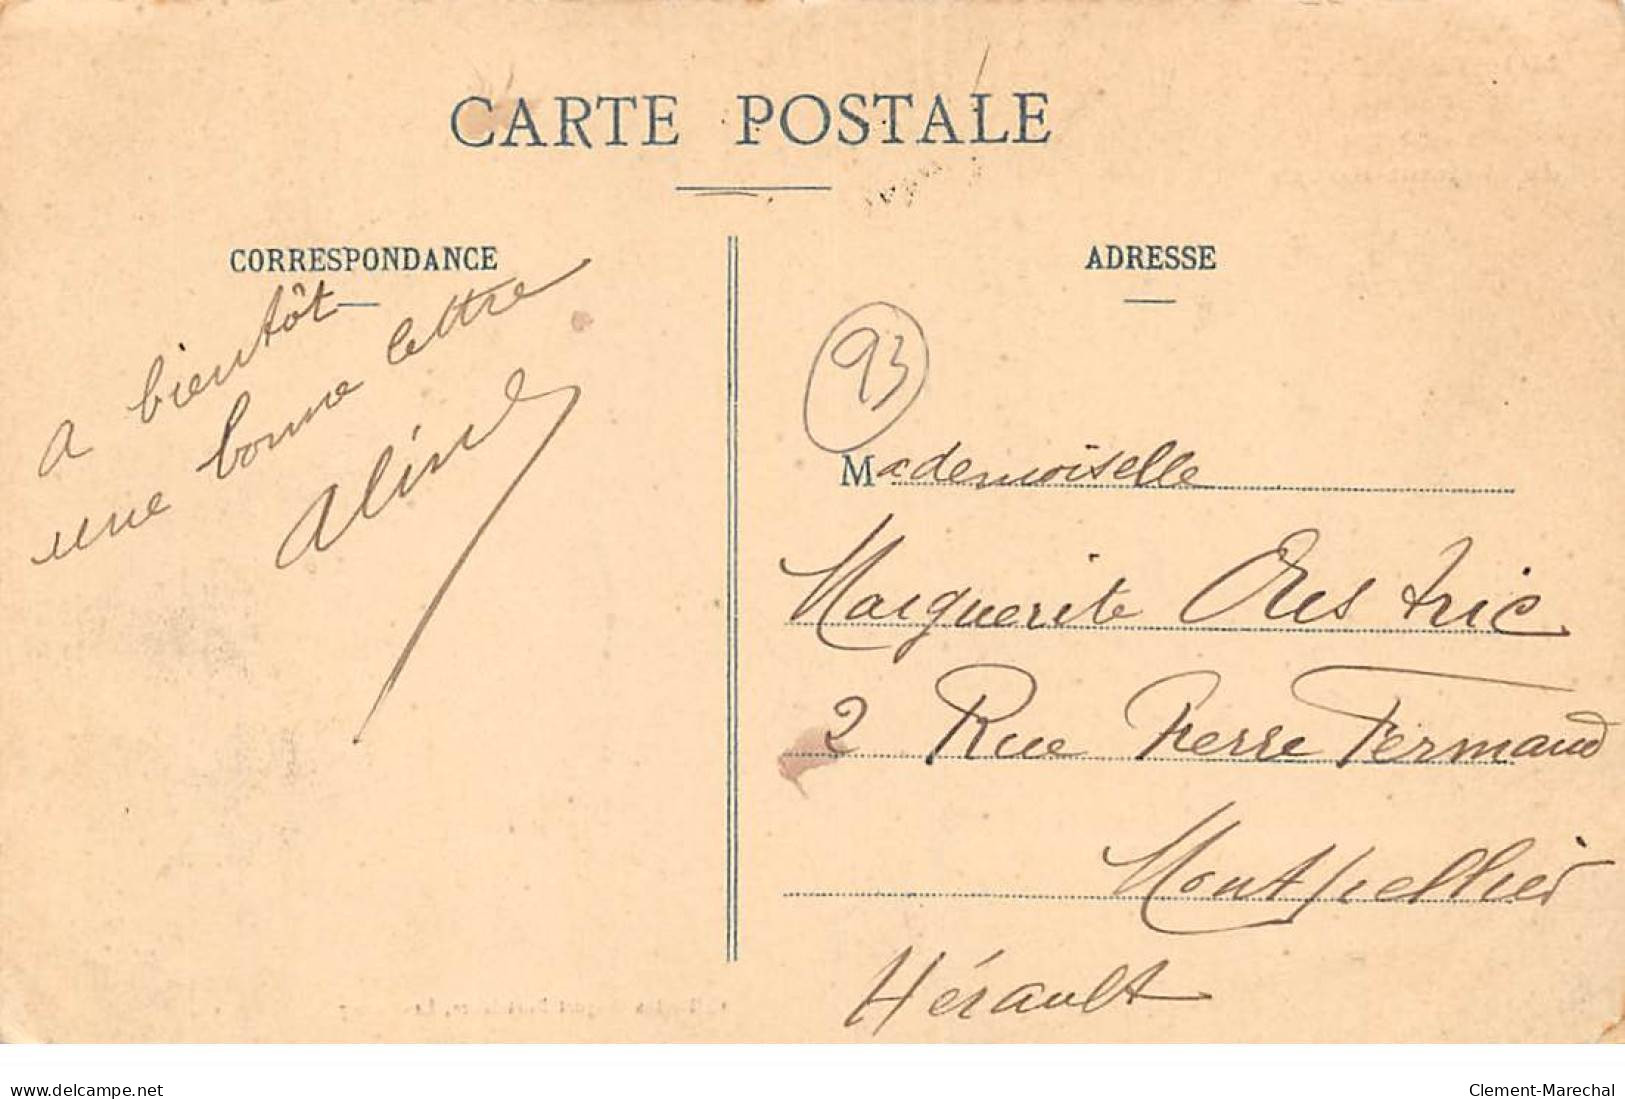 CARTE POSTALE
CORRESPONDANCE
a bientôt
une bonne lettre
Aline
ADRESSE
93
Mademoiselle
Marguerite
2 Rue Pierre Fermaud
Montpellier
Hérault
delcampe.net
Clement-Marechal